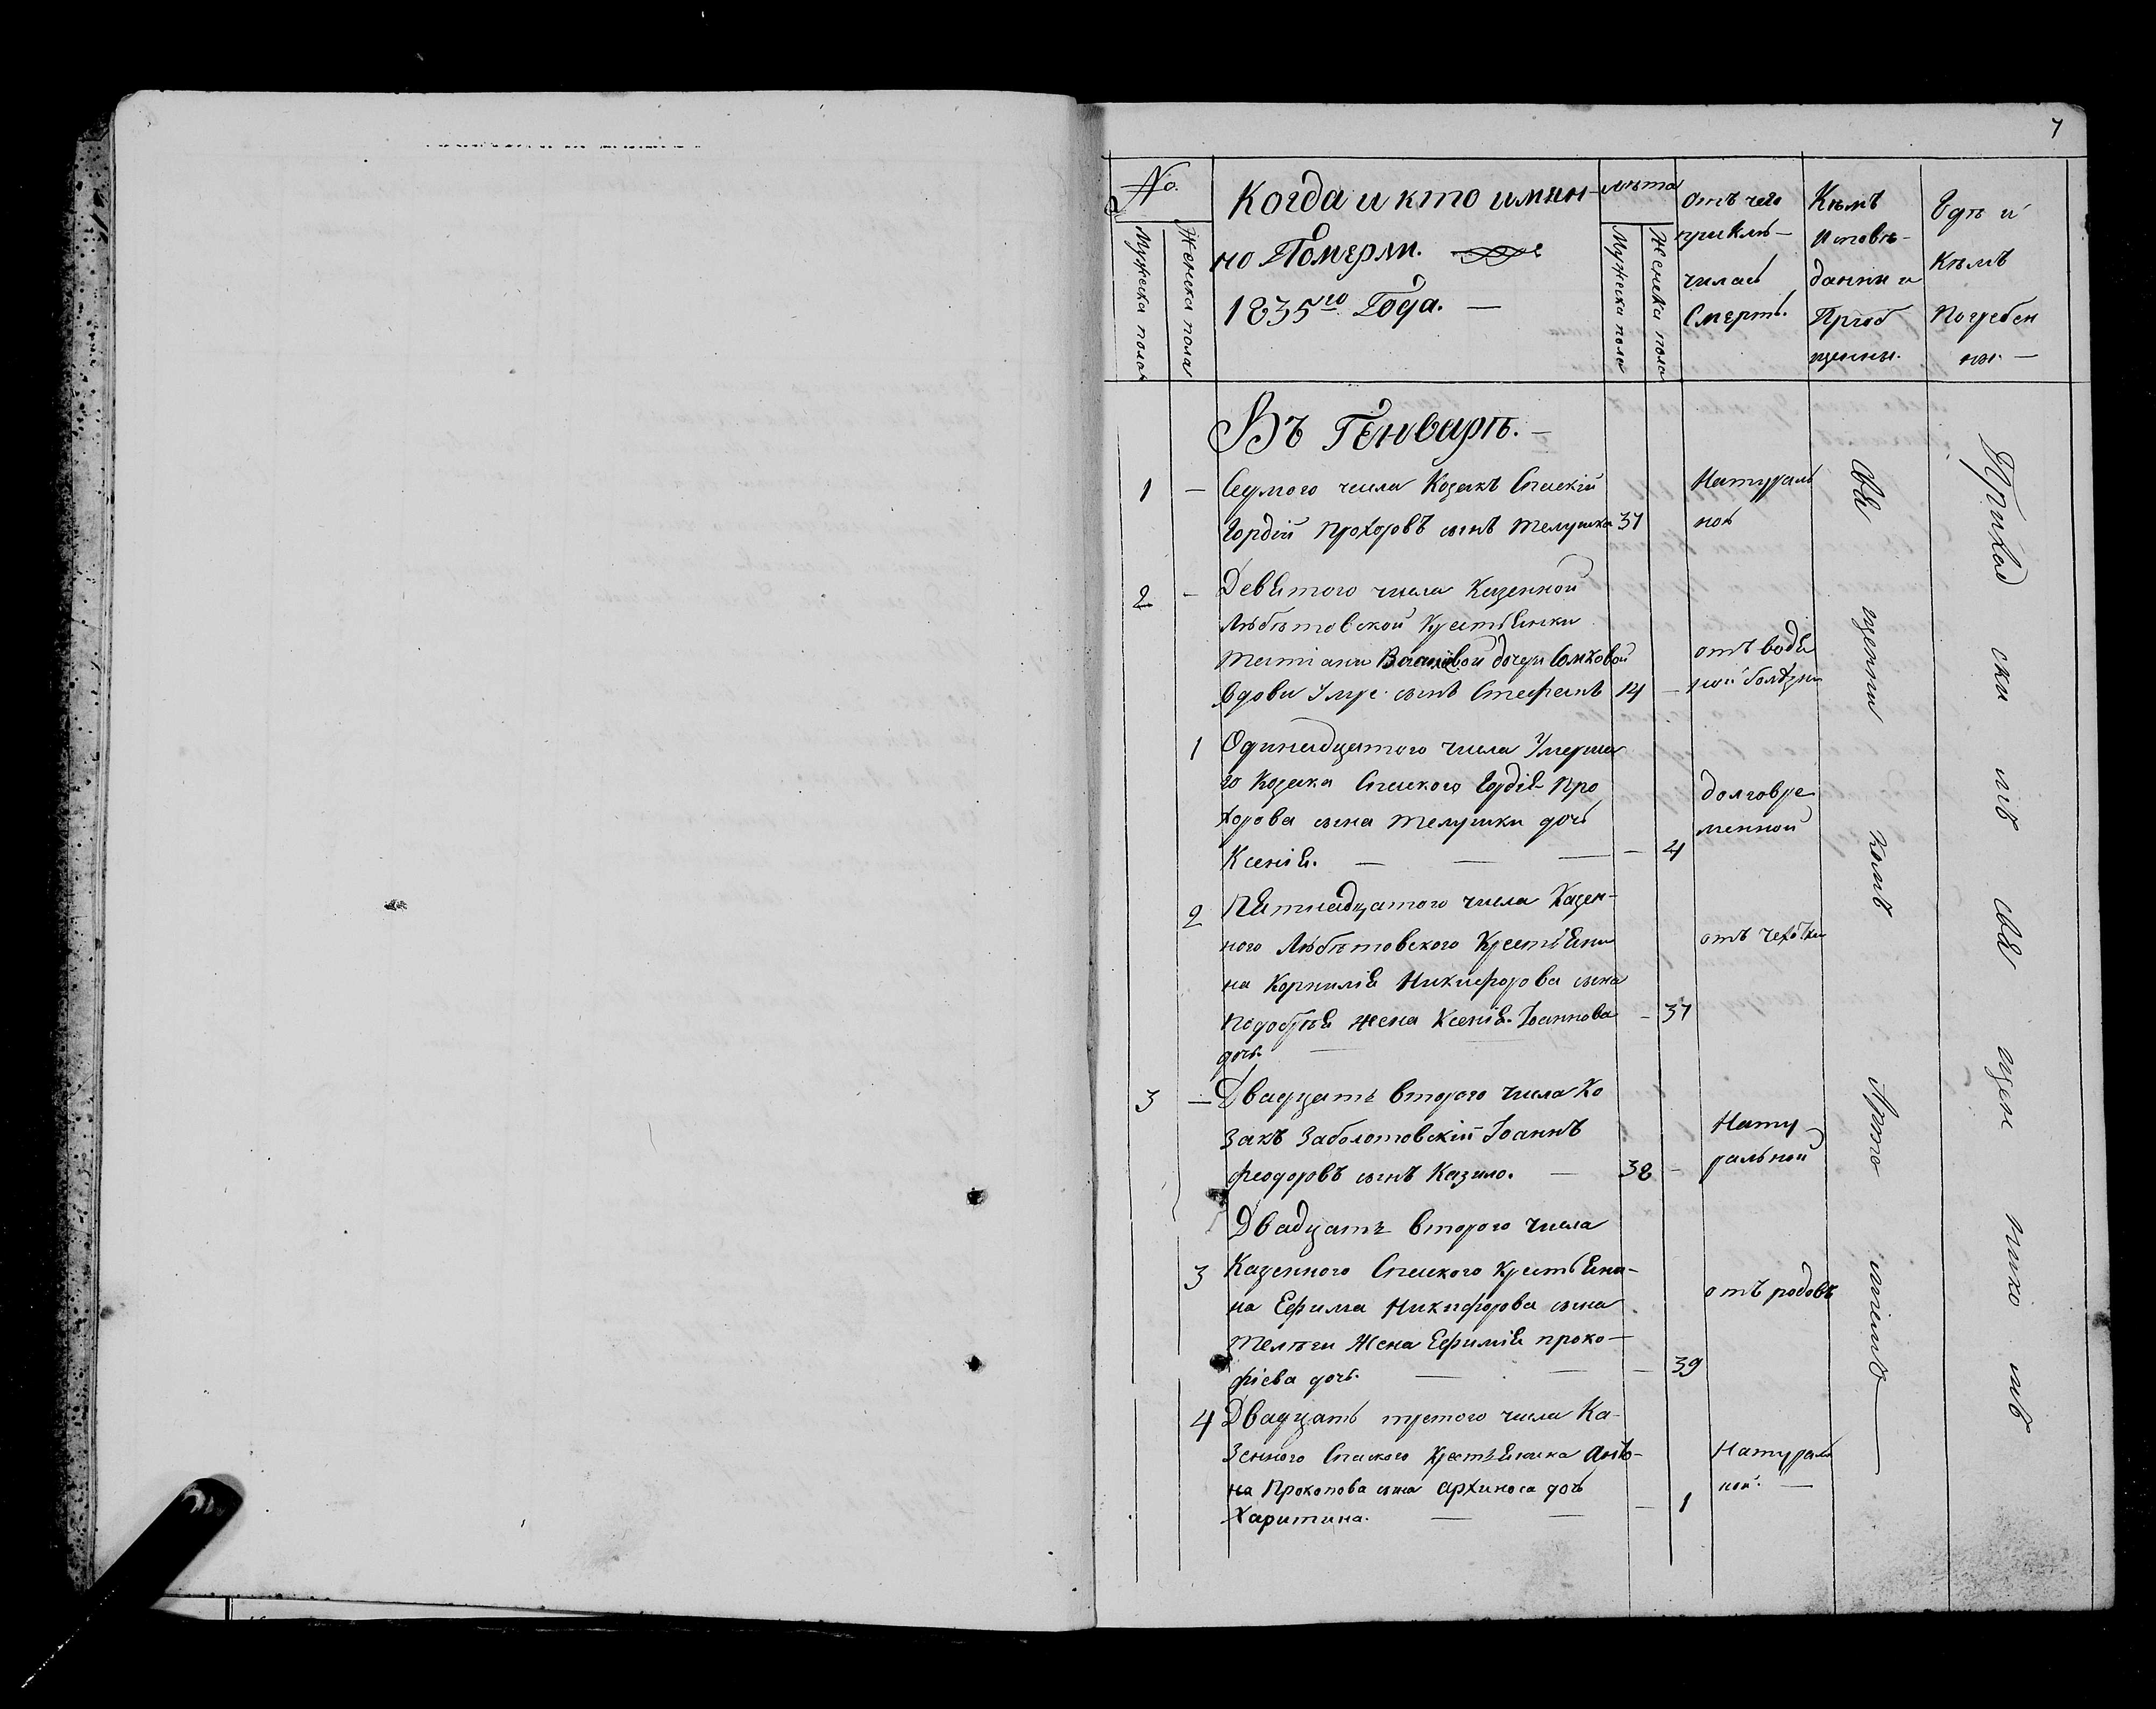 7
№.
Мужеска пола
Женска пола
Когда и кто имян-
но Померли.
1835го Года. —
лѣта
Мужеска пола
Женска пола
отъ чего
приклю-
чилась
Смерть.
Кѣмъ
Исповѣ-
данны и
Приоб
щенны.
Гдѣ и
Кѣмъ
Погребен
ны. —
Въ Генварѣ. —
1 — Седмого числа Козакъ Спаскій
Гордій Прохоровъ сынъ Телушка 37
Натураль
ной
2 — Девятого числа Казенной
Любѣтовской Крестьянки
Татіани дочери
Вдови Умре сынъ Стефанъ 14 —
отъ водя
ной болѣзни
1 Одинадцатого числа Умерша
го Козака Спаского Гордія Про
хорова сына Телушки дочь
Ксенія. — — — — 4
долговре
менной
2 Пятнадцатого числа Казен-
ного Любѣтовского Крестьяни
на Корнилія Никифорова сына
Подобрѣя жена Ксенія Іоаннова — 37
дочь —
отъ чехотки
3 — Двадцать второго числа Ко
закъ Заболотовскій Іоаннъ
Феодоровъ сынъ Казило. — 38 —
Нату
ральной
Двадцать второго числа
3 Казенного Спаского Крестьяни-
на Ефима Никифорова сына
Телѣги Жена Ефимія Проко-
фіева дочь. — — — 39
отъ родовъ
4 Двадцать третого числа Ка-
зенного Спаского Крестьянина Анто-
на Прокопова сына Архипоса дочь
Харитина. — — — 1
Натураль
ной. —
Свя щенни комъ —
Приход ски мъ Свя щен нико мъ